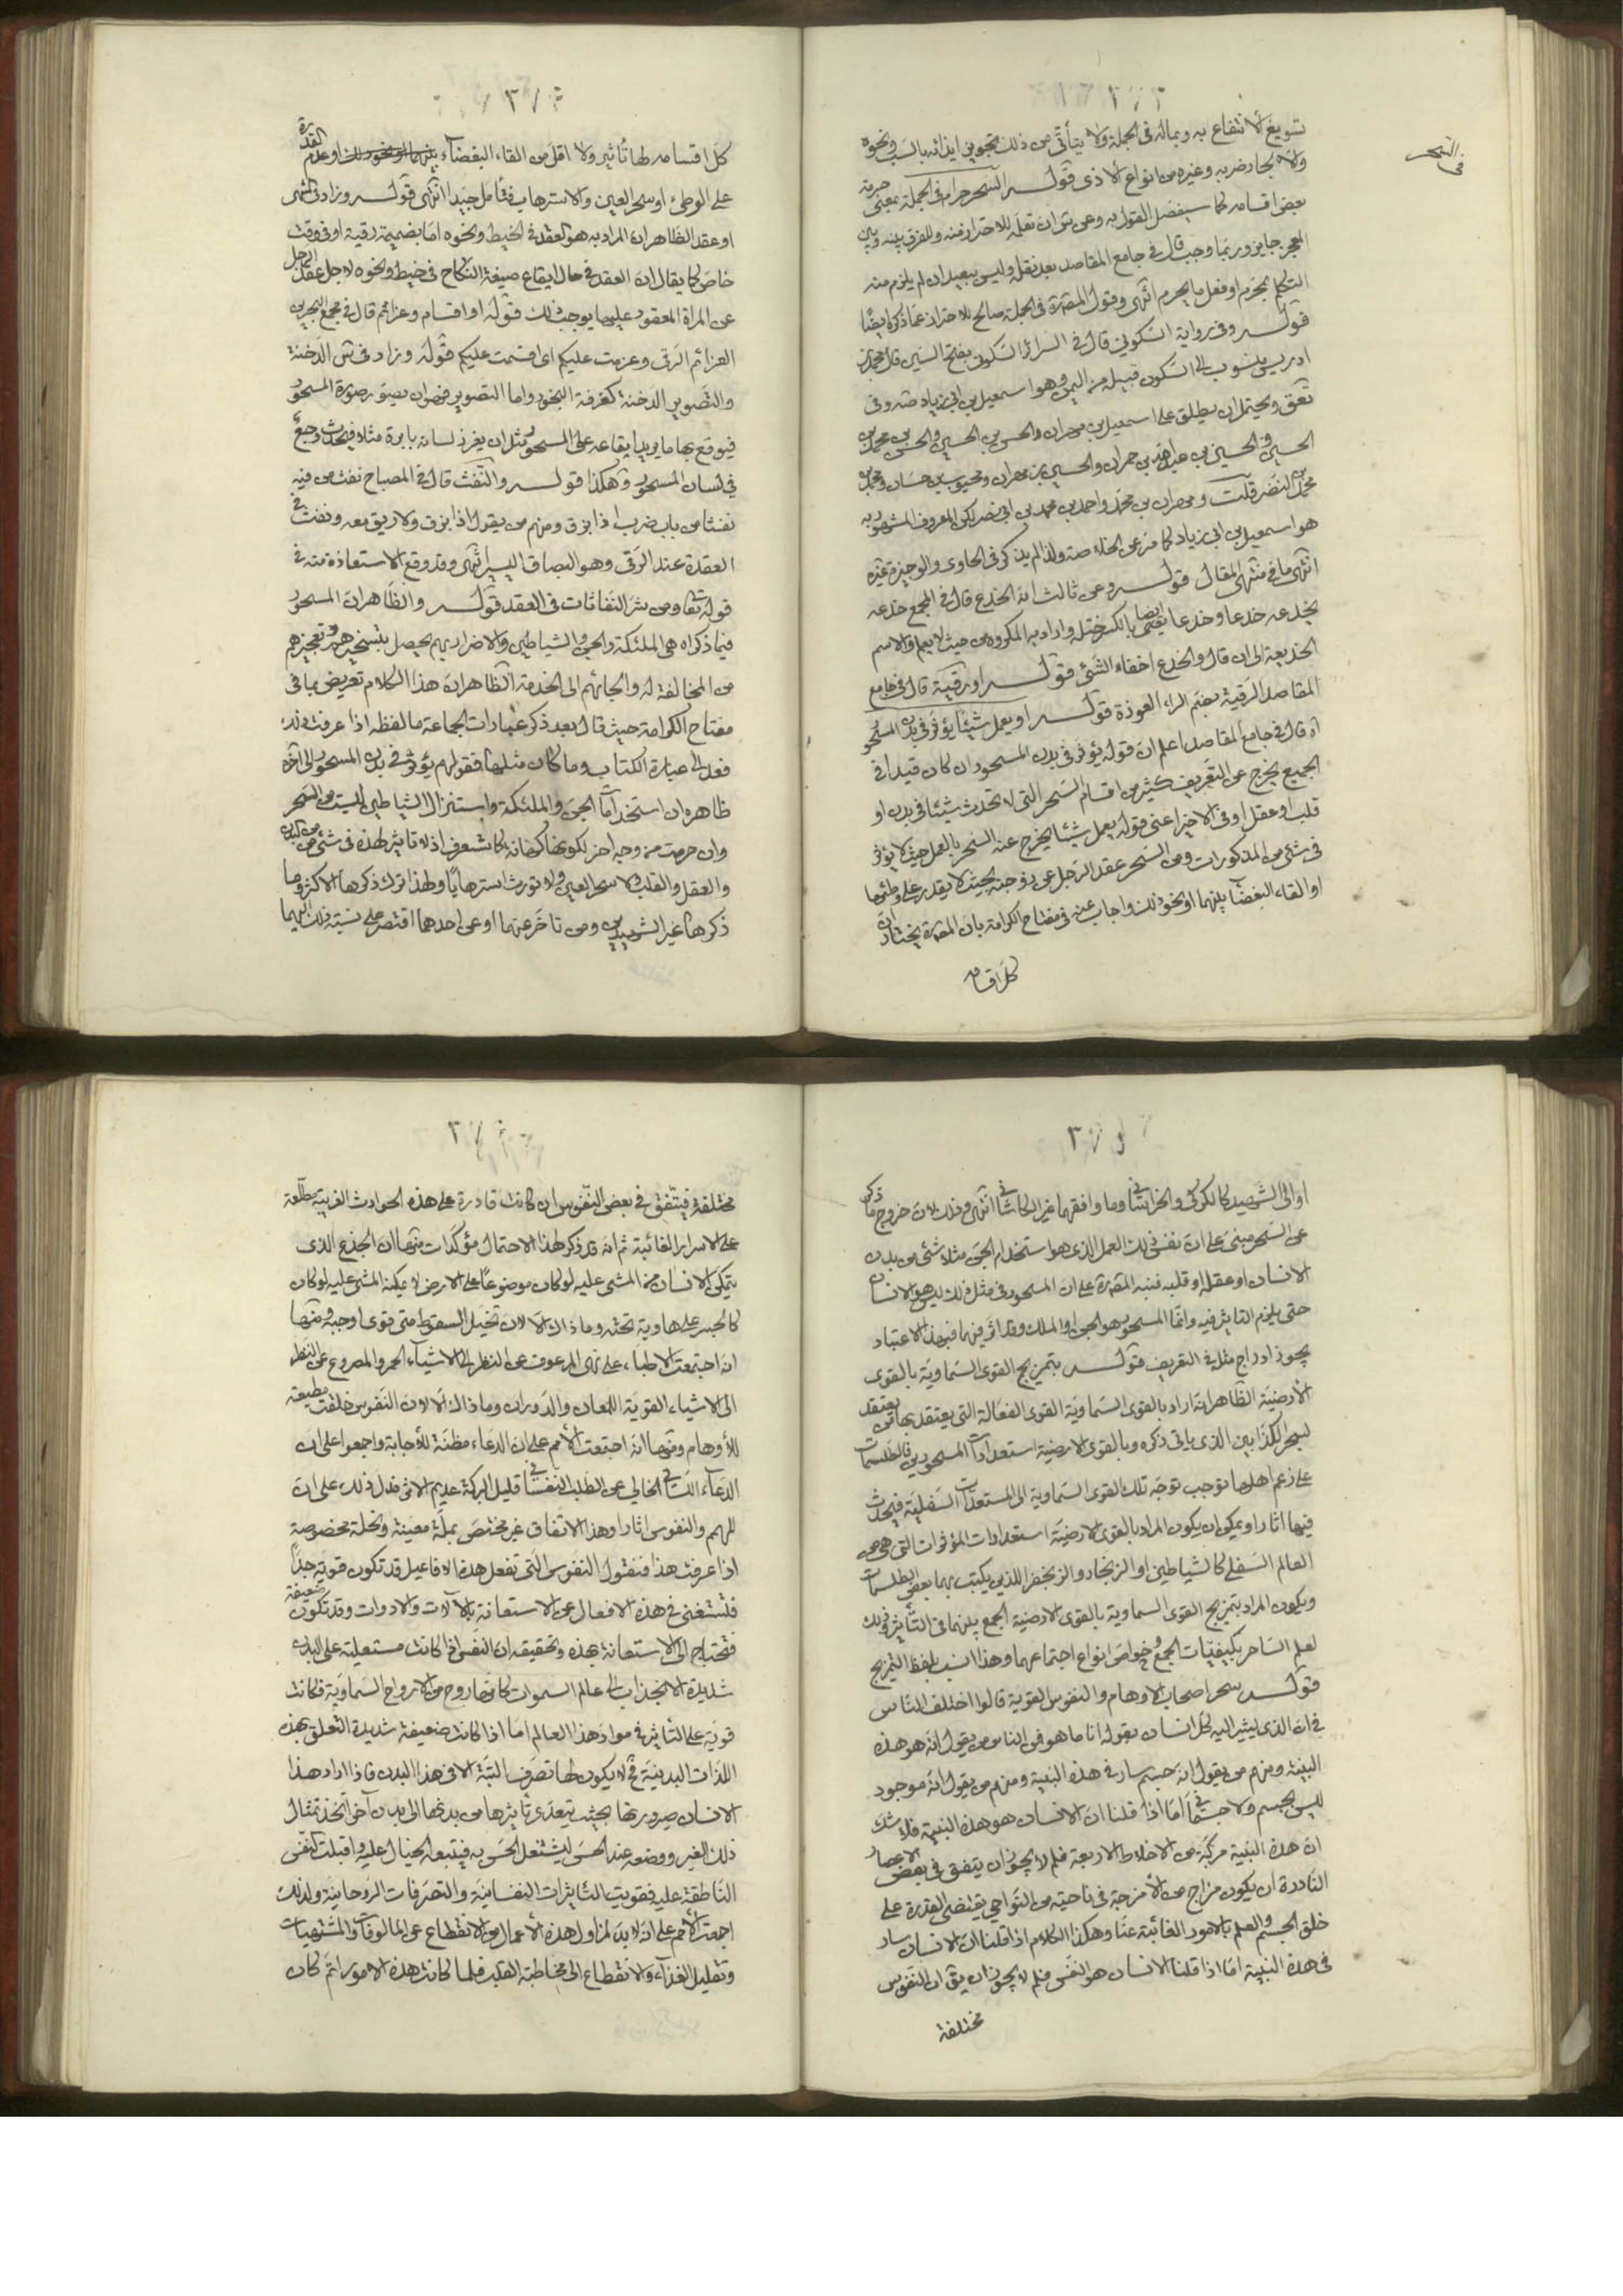 في السحر
تسويغ الانتفاع به وبماله في الجملة ولا يتأتى من ذلك تجويز ايذائه بالسب ونحوه
ولا ايجاد ضربه وغيره من انواع الاذى قوله السحر حرام في الجملة بمعنى حرمة
بعض اقسامه كما سيفصل القول به وعن ش ان تعلمه للاحتراز منه وللفرق بينه وبين
المعجز جايز وربما وجب قال في جامع المقاصد بعد نقله وليس ببعيد ان لم يلزم منه
التكلم بمحرم او فعل ما يحرم انتهى وقول المص ره في الجملة صالح للاحتراز عما ذكر ايضا
قوله وفي رواية السكوني قال في السرائر السكوني بفتح السين قال محمد بن
ادريس منسوب الى السكون قبيلة من اليمن وهو اسمعيل بن ابي زياد صه وفي
تعق ويحتمل ان يطلق على اسمعيل بن مهران والحسن بن الحسين والحسن بن محمد بن
الحسين والحسين بن عبيد الله بن حمران والحسين بن مهران ومحبوب بن حسان ومحمد بن
محمد بن النضر قلت ومهران بن محمد واحمد بن محمد بن ابي نصر لكن المعروف المشهور به
هو اسمعيل بن ابي زياد كما مر عن الخلاصة ولذا لم يذكر في الحاوي والوجيزة غيره
انتهى ما في منتهى المقال قوله وعن ثالث انه الخدع قال في المجمع خدعه
يخدعه خدعا وخدعا ايضا بالكسر ختله واراد به المكروه من حيث لا يعلم والاسم
الخديعة الى ان قال والخدع اخفاء الشئ قوله او رقية قال في جامع
المقاصد الرقية بضم الراء العوذة قوله او يعمل شيئا يؤثر في بدن المسحور
اه قال في جامع المقاصد اعلم ان قوله يؤثر في بدن المسحور ان كان قيدا في
الجميع يخرج عن التعريف كثير من اقسام السحر التي لا تحدث شيئا في بدن او
قلب او عقل او في الاخير اعني قوله يعمل شيئا يخرج عنه السحر بالعمل حيث لا يؤثر
في شئ من المذكورات ومن السحر عقد الرجل عن زوجته بحيث لا يقدر على وطئها
او القاء البغضاء بينهما او نحو ذلك واجاب عنه في مفتاح الكرامة بان المص ره يختار ان
كل اقسامه
كل اقسامه لها تأثير ولا اقل من القاء البغضاء او عدم القدرة
على الوطئ او سحر العين والاسترهاب فتأمل جيدا انتهى قوله وزاد في
او عقد الظاهر ان المراد به هو العقد في الخيط ونحوه اما بضميمة رقية او في وقت
خاص كما يقال ان العقد في حال ايقاع صيغة النكاح في خيط ونحوه لاجل عقد الرجل
عن المراة المعقود عليها يوجب ذلك قوله او اقسام وعزائم قال في مجمع البحرين
العزائم الرقى وعزمت عليكم اي اقسمت عليكم قوله وزاد في س الدخنة
والتصوير الدخنة كغرفة البخور واما التصوير فهو ان يصور صورة المسحور
فيوقع بها ما يريد ايقاعه على المسحور مثل ان يغرز لسانه بابرة مثلا فيحدث وجع
في لسان المسحور وهكذا قوله والنفث قال في المصباح نفث من فيه
نفثا من باب ضرب اذا بزق ومنهم من يقول اذا بزق ولا ريق معه ونفث في
العقدة عند الرقى وهو البصاق اليسير انتهى وقد وقع الاستعاذة منه في
قوله تعا ومن شر النفاثات في العقد قوله والظاهر ان المسحور
فيما ذكراه هي الملئكة والجن والشياطين والاضرار بهم يحصل بتسخيرهم وتعجيزهم
من المخالفة له والجائهم الى الخدمة الظاهر ان هذا الكلام تعريض بما في
مفتاح الكرامة حيث قال بعد ذكر عبارات الجماعة ما لفظه اذا عرفت هذا
فعد الى عبارة الكتاب وما كان مثلها فقولهم يؤثر في بدن المسحور الى اخره
ظاهره ان استخدام الجن والملئكة واستنزال الشياطين ليست من السحر
وان حرمت من وجه اخر لكونها كهانة كما ستعرف اذ لا تأثير لهذه في شئ من البدن
والعقل والقلب ولا سحر العين ولا تورث استرهابا ولهذا ترك ذكرها الاكثر وما
ذكرها غير الشهيدين ومن تاخر عنهما او عن احدهما اقتصر على نسبة ذلك اليهما
او الى الشهيد كالكركي والخراساني وما وافقهما غير الكاشاني انتهى وذلك لان خروج ما ذكر
عن السحر مبني على ان نفس ذلك العمل الذي هو استخدام الجن مثلا شئ من بدن
الانسان او عقله او قلبه فنبه المص ره على ان المسحور في مثل ذلك ليس هو الانسان
حتى يلزم التاثير فيه وانما المسحور هو الجن او الملك وقد اثر فيهما فبهذا الاعتبار
يجوز ادراج مثله في التعريف قوله بتمزيج القوى السماوية بالقوى
الارضية الظاهر انه اراد بالقوى السماوية القوى الفعالة التي يعتقد بها من يعتقد
لسحر الكذابين الذي ياتي ذكره وبالقوى الارضية استعدادات المسحورين فالطلسمات
على زعم اهلها توجب توجه تلك القوى السماوية الى المستعدات السفلية فيحدث
فيها اثارا ويمكن ان يكون المراد بالقوى الارضية استعدادات المؤثرات التي هي من
العالم السفلي كالشياطين او الزنجار والزنجفر اللذين يكتب بهما بعض الطلسمات
ويكون المراد بتمزيج القوى السماوية بالقوى الارضية الجمع بينهما في التأثير وذلك
لعلم الساحر بكيفيات الجمع وخواص انواع اجتماعهما وهذا انسب بلفظ التمزيج
قوله سحر اصحاب الاوهام والنفوس القوية قالوا اختلف الناس
في ان الذي يشير اليه كل انسان بقوله انا ما هو فمن الناس من يقول انه هو هذه
البنية ومنهم من يقول انه جسم سار في هذه البنية ومنهم من يقول انه موجود
ليس بجسم ولا جسماني اما اذا قلنا ان الانسان هو هذه البنية فلا شك
ان هذه البنية مركبة من الاخلاط الاربعة فلم لا يجوز ان يتفق في بعض الاعصار
النادرة ان يكون مزاج من الامزجة في ناحية من النواحي يقتضي القدرة على
خلق الجسم والعلم بالامور الغائبة عنا وهكذا الكلام اذا قلنا ان الانسان سار
في هذه البنية اما اذا قلنا الانسان هو النفس فلم لا يجوز ان يق ان النفوس
مختلفة
مختلفة فيتفق في بعض النفوس ان كانت قادرة على هذه الحوادث الغريبة مطلعة
على الاسرار الغائبة ثم انه قد ذكر لهذا الاحتمال مؤكدات منها ان الجذع الذي
يتمكن الانسان من المشي عليه لو كان موضوعا على الارض لا يمكنه المشي عليه لو كان
كالجسر على هاوية تحته وما ذاك الا لان تخيل السقوط متى قوى اوجبه ومنها
انه اجتمعت الاطباء على نهى المرعوف عن النظر الى الاشياء الحمر والمصروع عن النظر
الى الاشياء القوية اللمعان والدوران وما ذاك الا لان النفوس خلقت مطيعة
للاوهام ومنها انه اجتمعت الامم على ان الدعاء مظنة للاجابة واجمعوا على ان
الدعاء اللساني الخالي عن الطلب النفساني قليل البركة عديم الاثر فدل ذلك على ان
للهمم والنفوس اثارا وهذا الاتفاق غير مختص بملة معينة ونحلة مخصوصة
اذا عرفت هذا فنقول النفوس التي تفعل هذه الافاعيل قد تكون قوية جدا
فتستغني في هذه الافعال عن الاستعانة بالالات والادوات وقد تكون ضعيفة
فتحتاج الى الاستعانة بهذه وتحقيقه ان النفس اذا كانت مستعلية على البدن
شديدة الانجذاب الى عالم السموات كانها روح من الارواح السماوية فكانت
قوية على التأثير في مواد هذا العالم اما اذا كانت ضعيفة شديدة التعلق بهذه
اللذات البدنية فح لا يكون لها تصرف البتة الا في هذا البدن فاذا اراد هذا
الانسان صيرورتها بحيث يتعدى تأثيرها من بدنها الى بدن اخر اتخذ تمثال
ذلك الغير ووضعه عند الحس ليشتغل الحس به فيتبعه الخيال عليه واقبلت النفس
الناطقة عليه فقويت التأثيرات النفسانية والتصرفات الروحانية ولذلك
اجمعت الامم على انه لا بد لمزاول هذه الاعمال من الانقطاع عن المالوفات والمشتهيات
وتقليل الغذاء والانقطاع الى مخاطبة القلب فلما كانت هذه الامور اتم كان